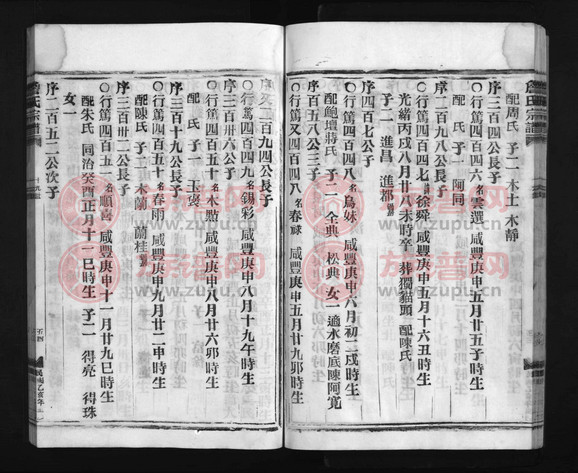 詹氏宗譜
配周氏 子二 木土 木靜
〇行篤四百四六 名雲選 咸豐庚申五月廿五子時生
配 氏 子一 阿同
序二百九八公長子
〇行篤四百四七 名徐舜 咸豐庚申五月十六丑時生
光緒丙戌八月廿八未時卒 葬獨貓頭 配陳氏
子二 進昌 進都
序四百七公子
〇行篤四百四八 名烏妹 咸豐庚申六月初二戌時生
配鮑壇蔣氏 子二 全典 松典 女一 適水磨底陳阿寬
序百五八公三子
〇行篤又四百四八 名春 咸豐庚申五月廿九卯時生
序 二百九四公長子
〇行篤四百四九 名錫彩 咸豐庚申八月十九午時生
序三百卅六公子
〇行篤四百五十 名木點 咸豐庚申八月廿六卯時生
配 氏 子一 玉裘
序三百十九公長子
〇行篤四百五十 名春雨 咸豐庚申九月廿二申時生
配陳氏 子二 木蘭 蘭桂
序三百卅二公長子
〇行篤四百五十 名順喬 咸豐庚申十一月廿九巳時生
配朱氏 同治癸酉正月十一巳時生 子二 得亮 得珠
女一
序二百五二公次子
詹氏宗譜
五四
民國乙亥年
族譜网
www.zupu.cn
族譜网
www.zupu.cn